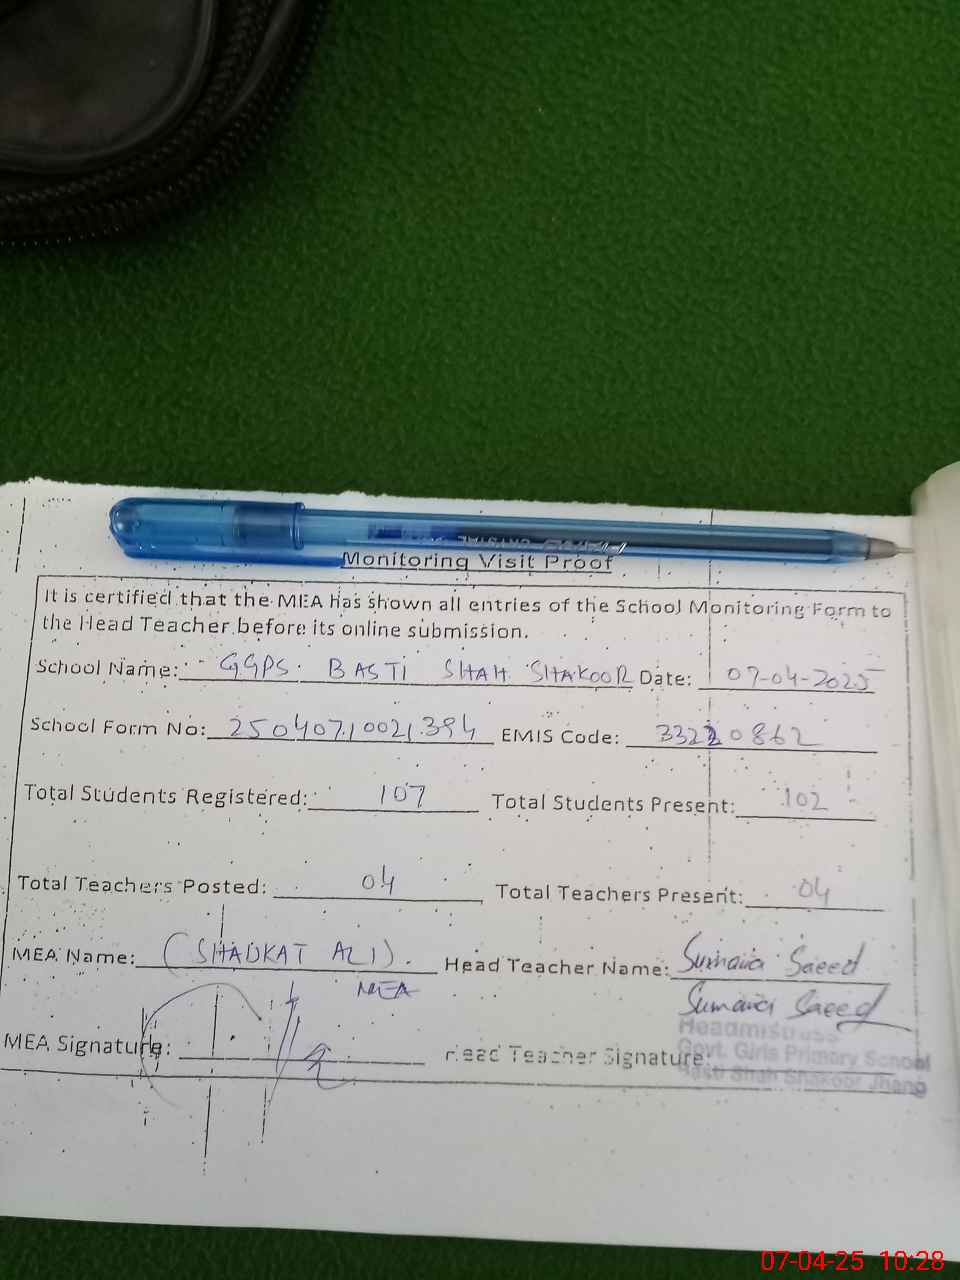 Monitoring Visit Proof
It is certified that the MEA has shown all entries of the School Monitoring Form to
the Head Teacher before its online submission.
School Name: GGPS. BASTI SHAH SHAKOOR Date: 07-04-2025
School Form No: 25040710021394 EMIS Code: 33220862
Total Students Registered: 107 Total Students Present: 102
Total Teachers Posted: 04 Total Teachers Present: 04
MEA Name: (SHAUKAT ALI). Head Teacher Name: Sumaira Saeed
MEA Sumaira Saeed
MEA Signature: Head Teacher Signature:
Headmistress
Govt. Girls Primary School
Basti Shah Shakoor Jhang
07-04-25 10:28